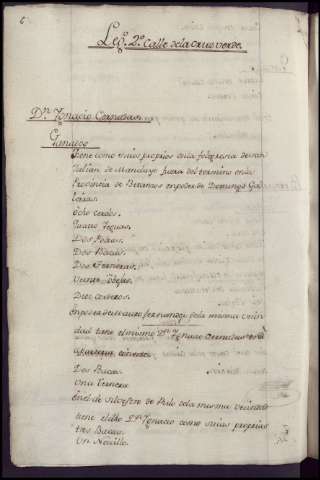 6
Leg.º 2.º Calle de la Cruz verde.
D.n Ygnacio
Ganados
Tiene como suios propios en la feligresia de san
Julian de Mandayo fuera del termino en la
Provincia de Betanzos en poder de Domingo Gal
Ocho cerdos.
Quatro Yeguas.
Dos Potros.
Dos Bacas.
Dos Terneras.
Veinte Obejas.
Diez corderos.
En poder de de la misma vecin
dad tiene el mismo D.n Ygnacio
Dos Bacas.
Una Ternera.
En el de Silvestre de de la misma vecindad
tiene el dho D.n Ygnacio como suios propios
tres Bacas.
Un Novillo.